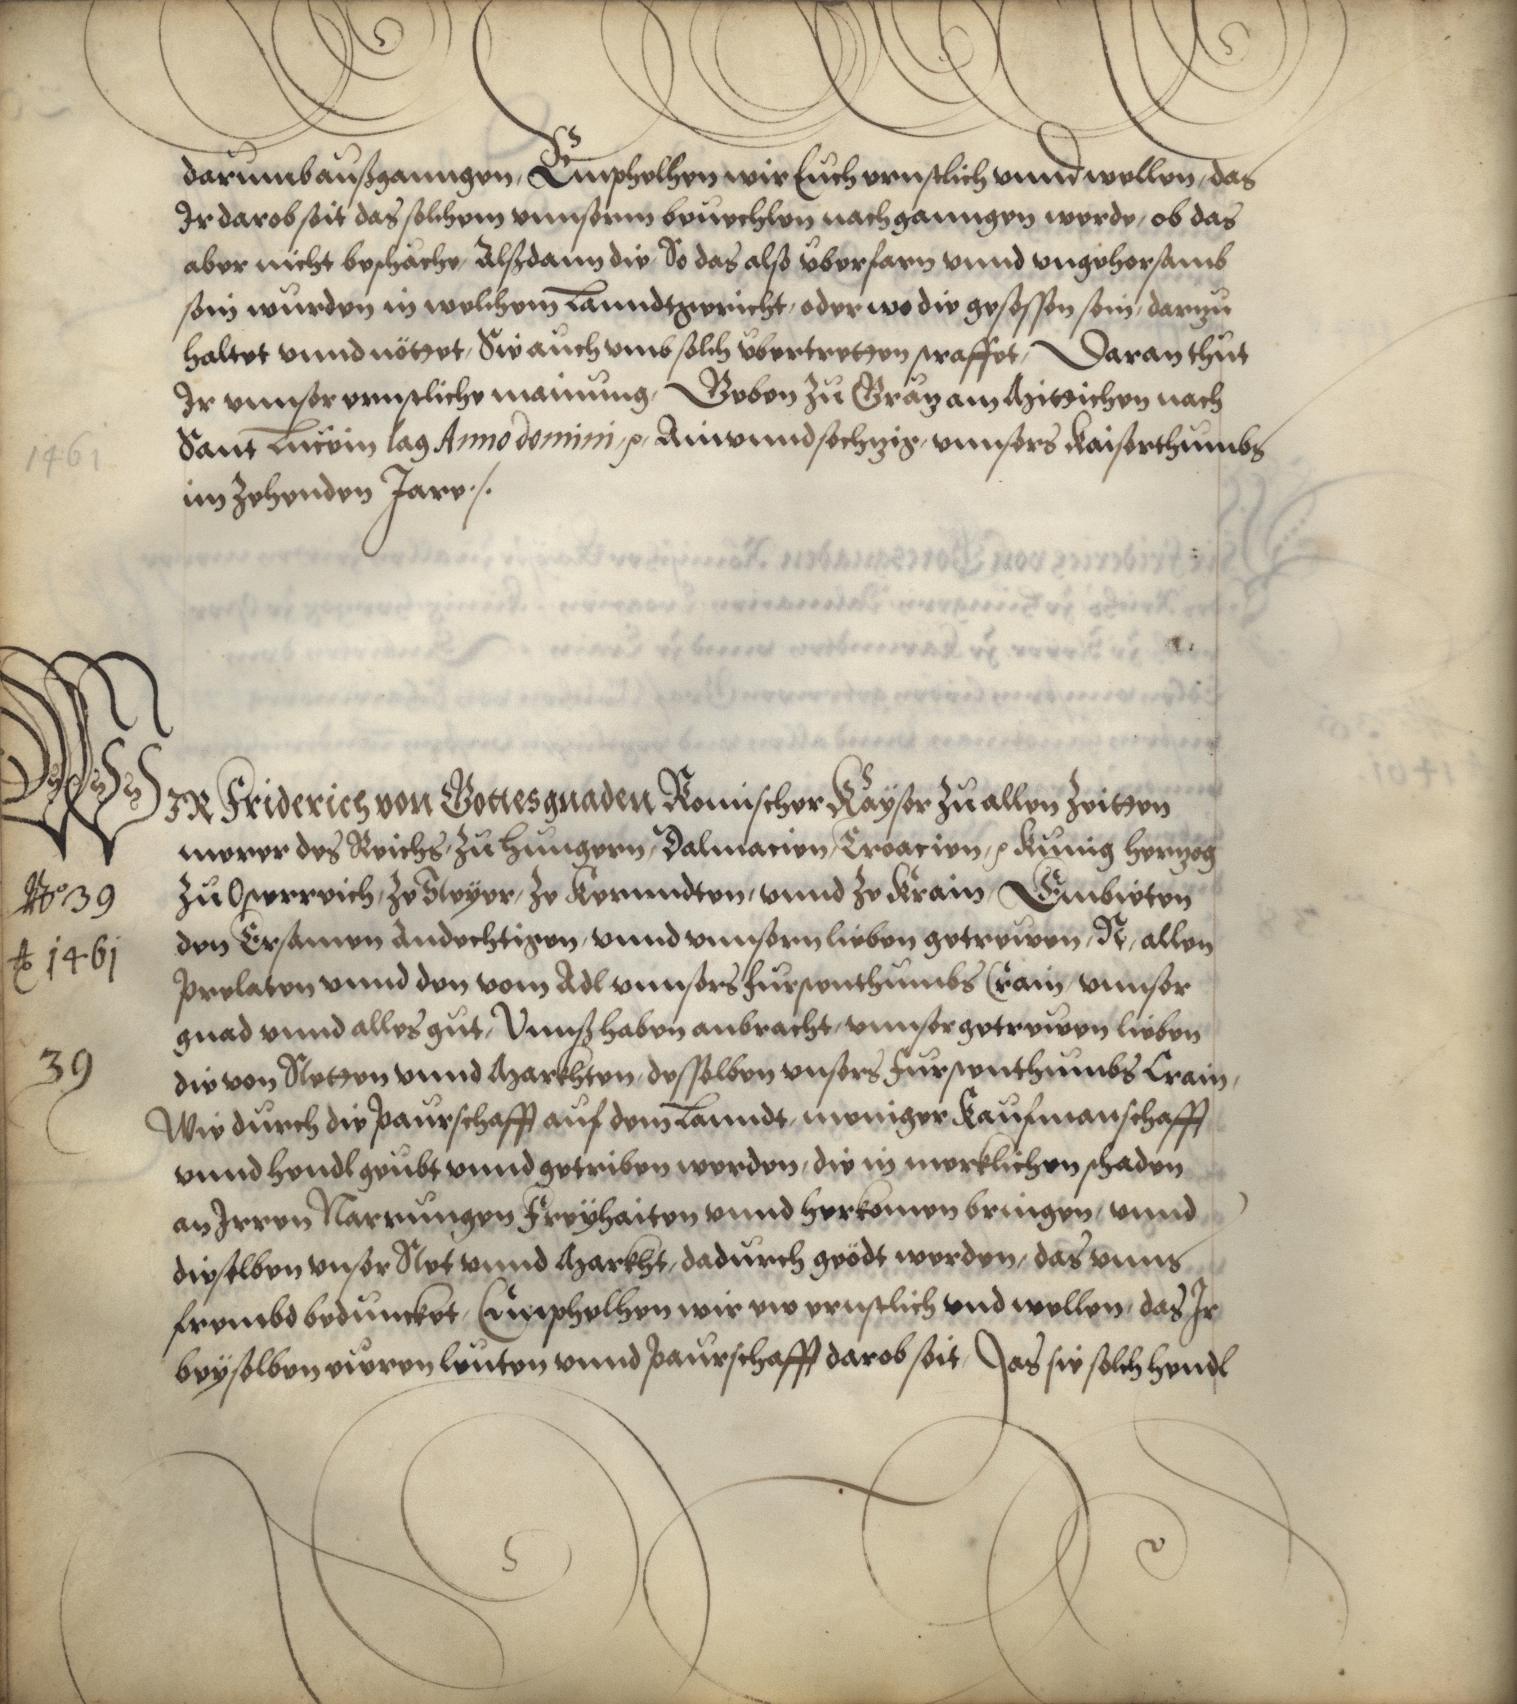 darumb außganngen, Emphelhen wir Euch ernstlich vnnd wellen, das
Ir darob seit das solchem vnnserm beuechlen nachganngen werde, ob das
aber nicht beschäche, Alßdann die, So das also überfarn vnnd vngehorsamb
sein wurden in welchem Lanndtgericht, oder wo die gesessen sein, darzu
haltet vnnd nöttet, Sie auch vmb solch übertretten straffet, Daran thut
Ir vnnser ernstliche mainung, Geben zu Grätz am Mittichen nach
Sant Lucein tag Anno domini, ꝛc, Ainvnndsechzig, vnnsers Kaiserthumbs
im Zehenden Jare ./.
1461
WIR Friderich von Gottes gnaden Romischer Kayser zu allen Zeitten
merer des Reichs, zu Hungern, Dalmacien, Croacien, ꝛc Kunig Hertzog
zu Osterreich, ze Steyer, ze Kernndten, vnnd ze Krain, Embieten
den Ersamen Andechtigen, vnnd vnnsern lieben getrewen, N, allen
Prelaten vnnd den vom Adl vnnsers Furstenthumbs Crain, vnnser
gnad vnnd alles gut, Vnnß haben anbracht, vnnser getrewen lieben
die von Stetten vnnd Markhten, desselben vnsers Furstenthumbs Crain,
Wie durch die Paurschafft auf dem Lanndt, meniger Kaufmanschafft
vnnd hendl geubt vnnd getriben werden, die in merklichen schaden
an Irren Narrungen Freyhaiten vnnd herkomen bringen, vnnd
dieselben vnser Stet vnnd Markht, dadurch geödt werden, das vnns
frembd beduncket, Emphelhen wir ew ernstlich vnd wellen, das Ir
bey selben eweren leuten vnnd Paurschafft darob seit, Das sie solch hendl
No 39
Ao 1461
39